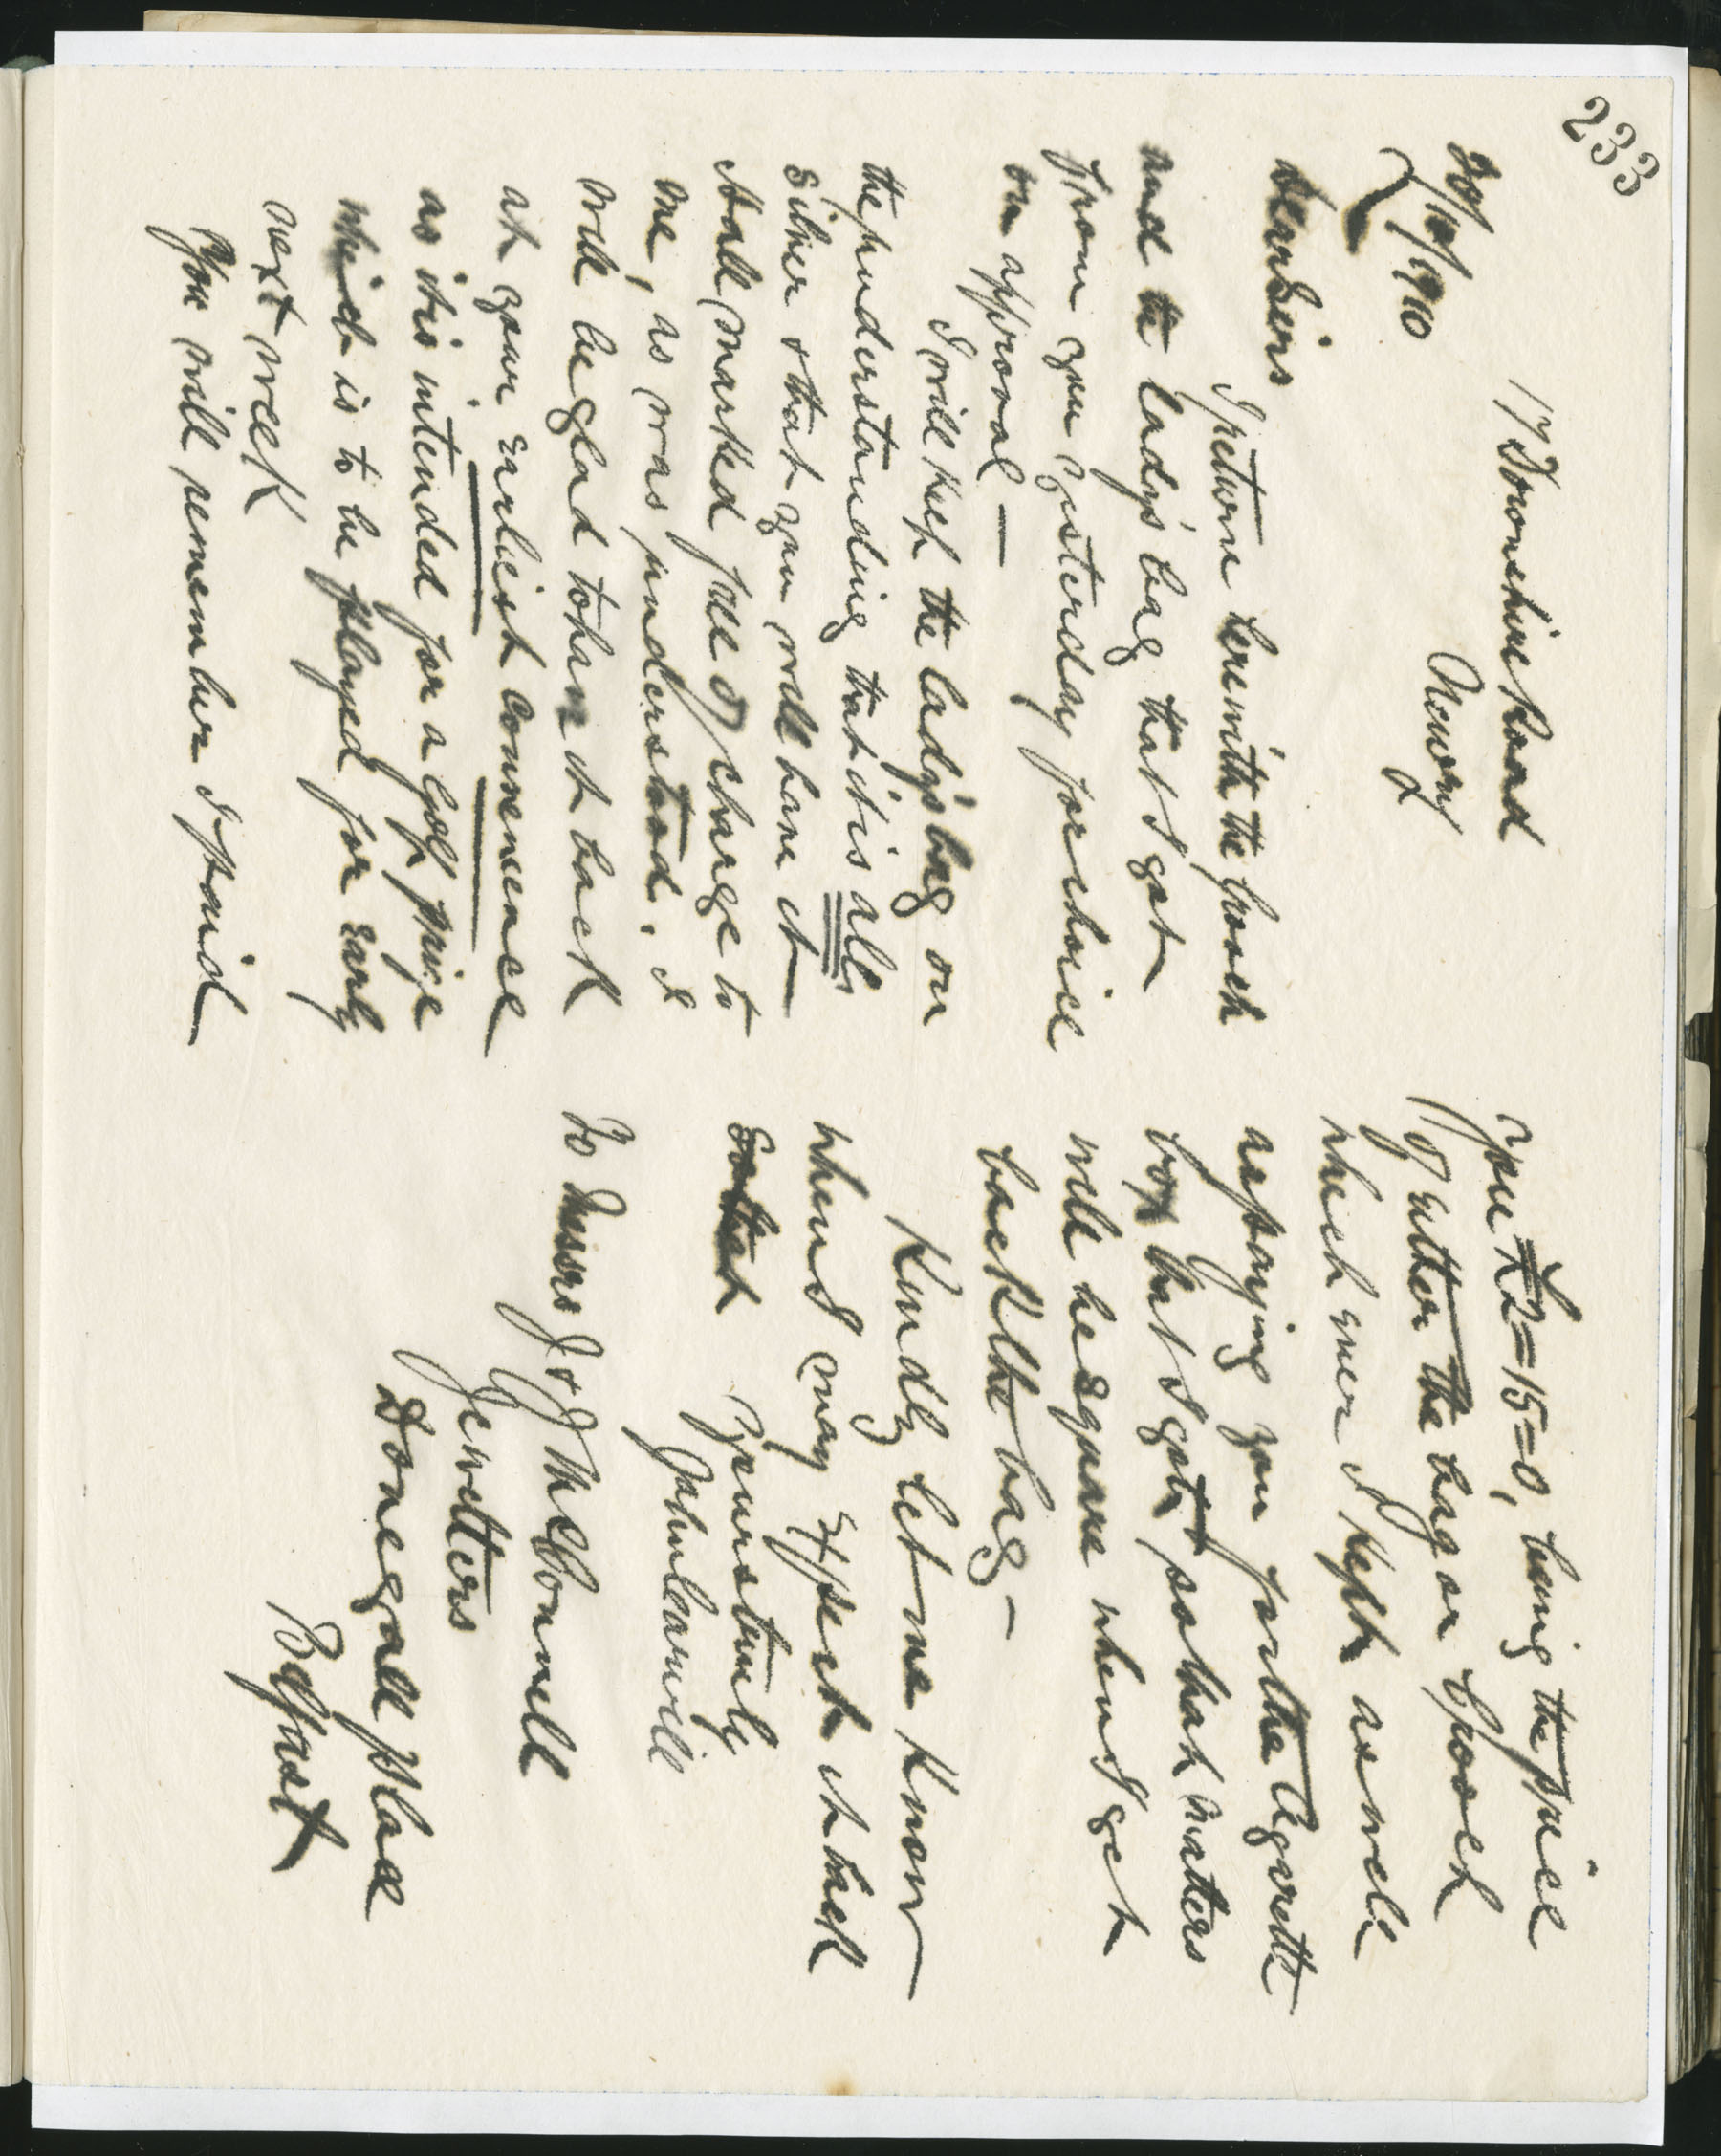 233
17 Downshire Road
Newry
20/10/1910
Dear Sirs
I return herewith the brooch
and the lady's bag that I got
from you yesterday for choice
on approval —
I will keep the lady's bag on
the understanding that it is all
silver & that you will have it
Hall marked free of charge to
me, as was understood. I
will be glad to have it back
at your earliest convenience
as it is intended for a Golf prize
which is to be played for early
next week
You will remember I paid
you £2=15=0, being the price
of either the bag or brooch
which ever I kept as well
as paying you for the Cigarette
box that I got, so that matters
will be square when I get
back the bag —
Kindly let me know
when I may expect it back
Yours truly
To Messrs J & J McConnell
Jewellers
Donegall Place
Belfast